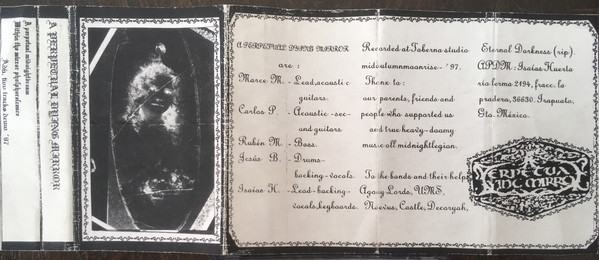 A PERPETUAL DYING MIRROR
A perpetual midnights
Within the mirror
Adv. two tracks demo '97
A PERPETUAL DYING MIRROR
are :
Marco M. - Lead, acoustic
guitars.
Carlos P. - Acoustic - sec-
ond guitars
Rubén M. - Bass.
Jesús B. - Drums -
backing - vocals.
Isaías H. - Lead - backing -
vocals, keyboards.
Recorded at Taberna studio
mid autumnmoonrise - '97.
Thanx to :
our parents, friends and
people who supported us
and true heavy - doomy
music all midnightlegion.
To the bands and their help:
Agony Lords, UMS,
Noevus, Castle, Decoryah,
Eternal Darkness (rip).
APDM : Isaías Huerta
río lerma 2194, fracc. la
pradera, 36630. Irapuato,
Gto. México.
PERPETUAL
DYING MIRROR